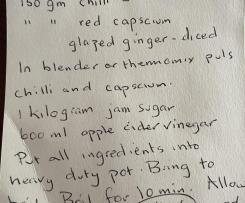 150 gm chilli
" " red capscium
glazed ginger - diced
In blender or thermomix puls
chilli and capscium.
1 kilogram jam sugar
600 ml apple cider vinegar
Put all ingredients into
heavy duty pot. Bring to
Boil for 10 min. Allow